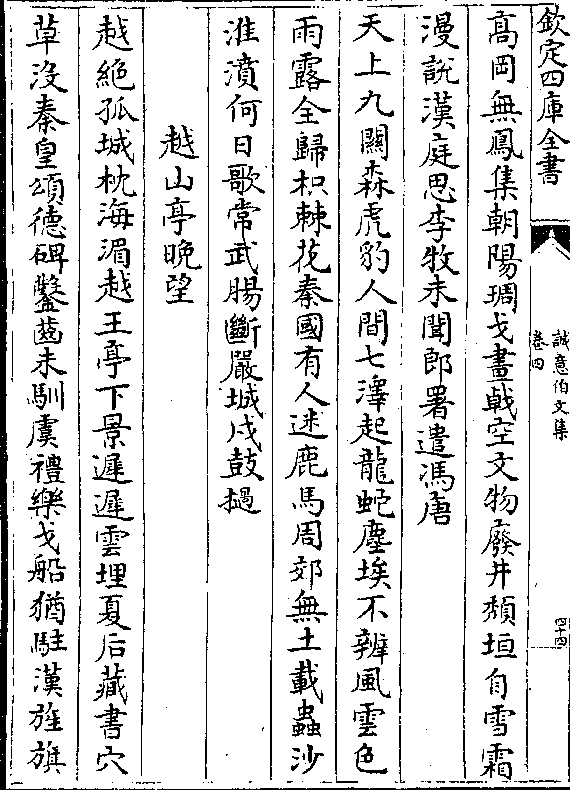 欽定四庫全書
誠意伯文集
卷四
四十四
高岡無鳳集朝陽琱戈畫㦸空文物廢井頽垣自雪霜
漫說漢庭思李牧未聞郎署遣馮唐
天上九關森虎豹人間七澤起龍蛇塵埃不辨風雲色
雨露全歸枳棘花秦國有人迷鹿馬周郊無土載蟲沙
淮濆何日歌常武腸斷嚴城戍鼓撾
越山亭晩望
越絶孤城枕海湄越王亭下景遲遲雲埋夏后藏書穴
草沒秦皇頌德碑鑿齒未馴虞禮樂戈船猶駐漢旌旗